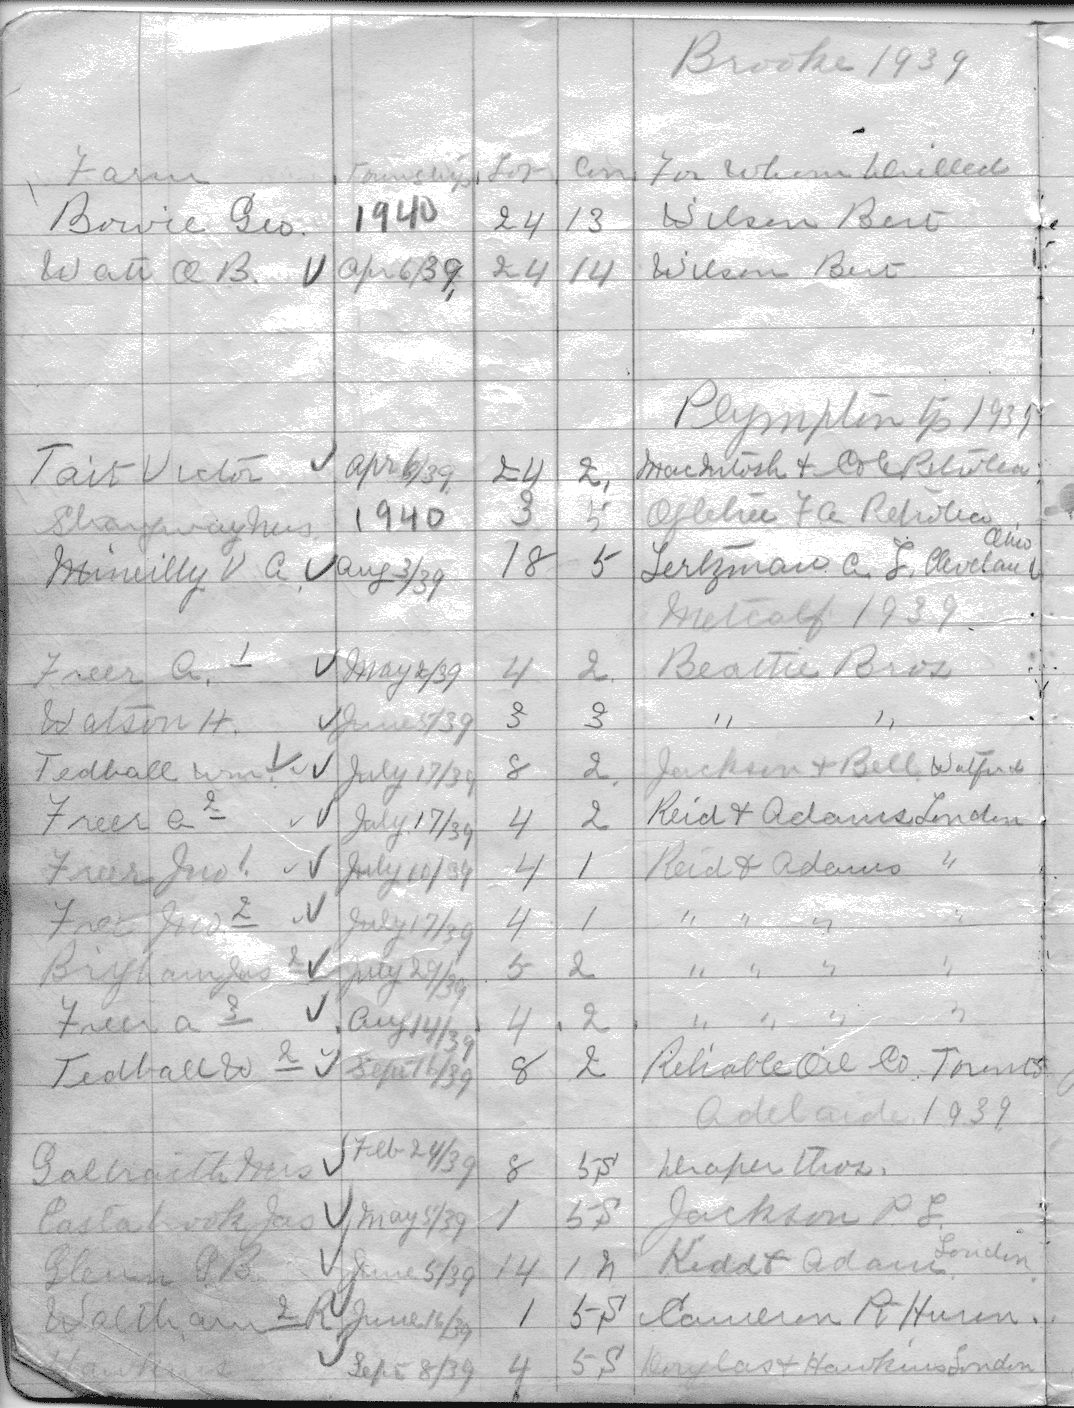 Brooke 1939
Farm Township Lot Con For Whom Drilled
Bowie Geo. 1940 24 13 Wilson Bert
Watt O B. ✓ Apr 6/39 24 14 Wilson Bert
Plympton Tp 1939
Tait Victor ✓ Apr 6/39 24 2 MacIntosh & Cole Petrolea
Mrs. 1940 3 5 F a Petrolea
Ohio
V C. ✓ Aug 3/39 18 5 Lertzman A. L. Cleveland
Metcalf 1939
Freer A. 1 ✓ May 2/39 4 2 Beattie Bros
Watson H. ✓ June 5/39 3 3 " "
Tedball Wm. 1 ✓✓ July 17/39 8 2 Jackson & Bell Watford
Freer A 2 ✓✓ July 17/39 4 2 Reid & Adams London
Freer Jno 1. ✓✓ July 10/39 4 1 Reid & Adams "
Freer Jno. 2 ✓✓ July 17/39 4 1 " " " "
Brigham Jas 2 ✓ July 29/39 5 2 " " " "
Freer A 3 ✓ Aug 14/39 4 2 " " " "
Tedball W 2 ✓ Sept 16/39 8 2 Reliable Oil Co. Toronto
Adelaide 1939
Galbraith Mrs ✓ Feb 24/39 8 5S Draper Thos.
Eastabrook Jas ✓ May 5/39 1 5S Jackson P. L.
Glenn P. B. ✓ June 5/39 14 1 N Kidd & Adam London
Waltham 2 R ✓ June 16/39 1 5S Cameron R Huron.
Hawkins ✓ Sept 8/39 4 5S Douglas & Hawkins London